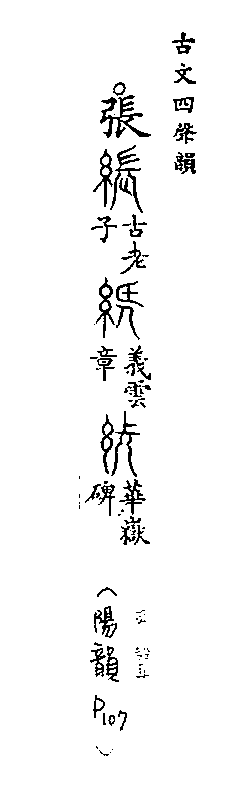 古文四聲韻
張
古老子
義雲章
華嶽碑
(陽韻 P107)